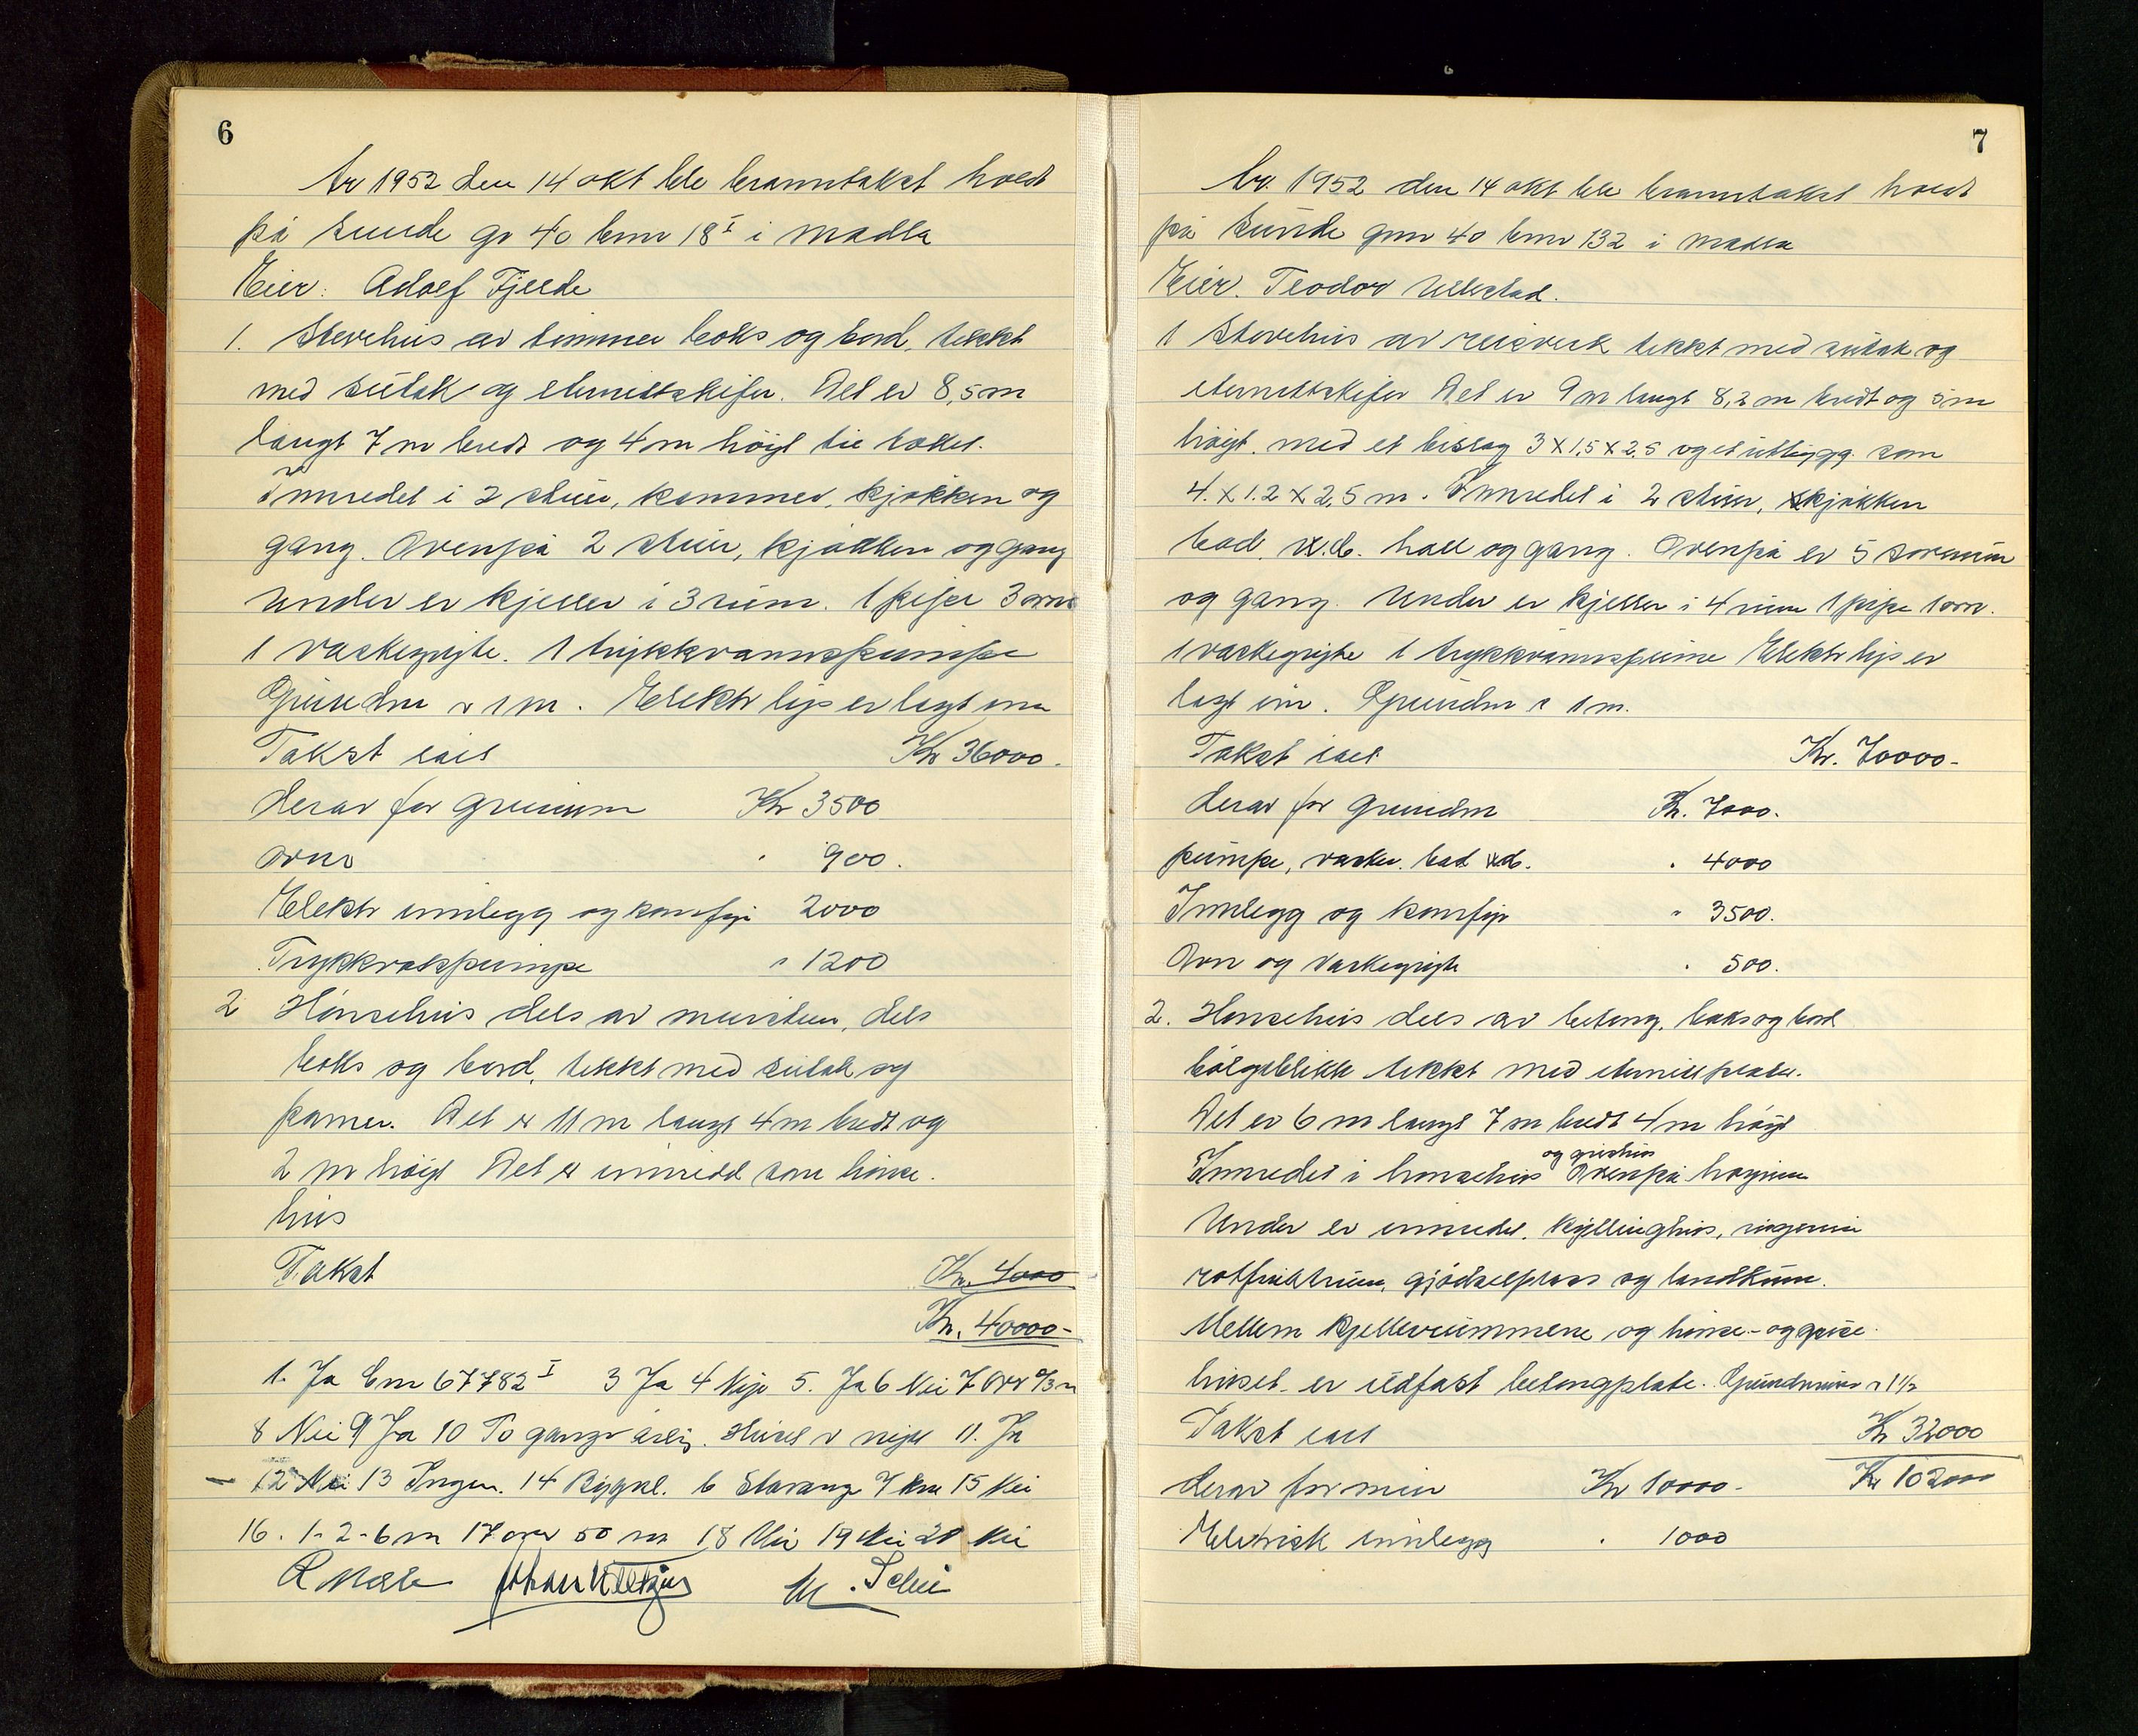 6
År 1952 den 14 okt ble branntakst holdt
på Sunde gr 40 bnr 18 I i Madla
Eier: Adolf Fjelde
1. Stovehus av tømmer boks og bord, tekket
med sutak og eternittskifer. Det er 8,5 m
langt 7 m bredt og 4 m höigt til taket.
Innredet i 2 stuer, kammer, kjøkken og
gang. Ovenpå 2 stuer, kjøkken og gang
Under er kjeller i 3 rum. 1 pipe 3 ovne
1 vaskegryte. 1 trykkvannspumpe
Grundm v 1 m. Elektr lys er lagt inn
Takst ialt Kr 36000.
derav for grunnm Kr 3500
ovne " 900.
Elektr innlegg og komfyr 2000
Trykkvaspumpe " 1200
2 Hönsehus dels av murstein, dels
boks og bord, tekkt med sutak og
panner. Det er 11 m langt 4 m bredt og
2 m höigt Det er innredd som hönse
hus
Takst Kr. 4000
Kr. 40000-
1. Ja Bnr 67782 I 3 Ja 4 Nye 5. Ja 6 Nei 7 Over 2/3 m
8 Nei 9 Ja 10 To ganger årlig. Huset er nytt 11. Ja
- 12 Nei 13 Ingen. 14 Bygnl. b Stavang 7 km 15 Nei
16. 1-2-6 m 17 over 50 m 18 Nei 19 Nei 20 Nei
7
År 1952 den 14 okt ble branntakst holdt
på Sunde gnr 40 bnr 132 i Madla
Eier. Teodor Ullestad.
1 Stovehus av reisverk tekkt med sutak og
eternittskifer Det er 9 m langt 8,2 m bredt og 5 m
höigt. med et bislag 3 x 1,5 x 2,5 og et utbygg som
4. x 1.2 x 2,5 m. Innredet i 2 stuer, kjøkken
bad, w.c. hall og gang. Ovenpå er 5 soverum
og gang. Under er kjeller i 4 rum 1 pipe 1 ovn.
1 vaskegryte 1 trykkvannspume Elektr lys er
lagt inn. Grundm v 1 m.
Takst ialt Kr. 70000-
derav for grundm Kr. 7000.
pumpe, vasker. bad wc. " 4000
Innlegg og komfyr " 3500.
Ovn og vaskegryte " 500.
2. Hönsehus dels av betong, boks og bord
bölgeblikk tekkt med eternittplater.
Det er 6 m langt 7 m bredt 4 m höigt
og grishus
Innredet i hönsehus Ovenpå höyrum
Under er innredet. Kyllinghus, vognrum
rotfruktrum, gjödselplass og landkum.
Mellem kjellerrummene og hönse- og grise
huset er ildfast betongplate. Grundmur v 1 1/2
Takst ialt Kr 32000
derav for mur Kr 10000- Kr 102000
Elektrisk innlegg " 1000